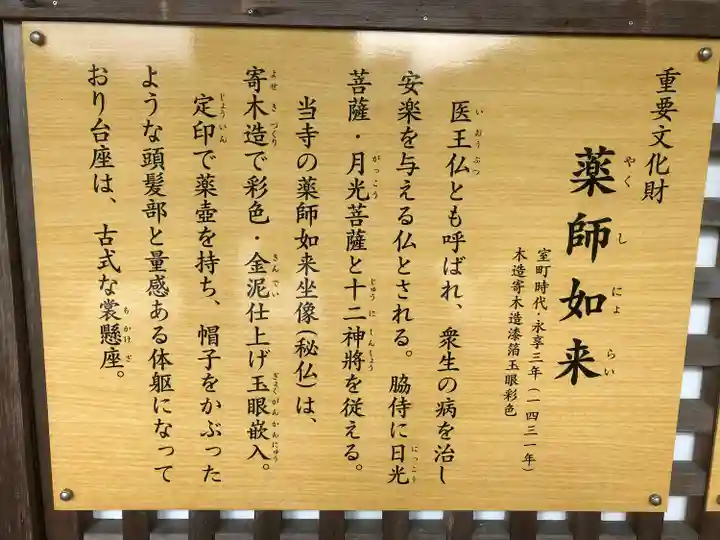 重要文化財
薬師如来
やくしにょらい
室町時代・永享三年(一四三一年)
木造寄木造漆箔玉眼彩色
医王仏とも呼ばれ、衆生の病を治し
いおうぶつ
安楽を与える仏とされる。脇侍に日光
にっこう
菩薩・月光菩薩と十二神將を従える。
がっこう じゅうにしんしょう
当寺の薬師如来坐像(秘仏)は、
寄木造で彩色・金泥仕上げ玉眼嵌入。
よせきづくり きんでい ぎょくがんかんにゅう
定印で薬壺を持ち、帽子をかぶった
じょういん
ような頭髪部と量感ある体躯になって
おり台座は、古式な裳懸座。
もかけざ